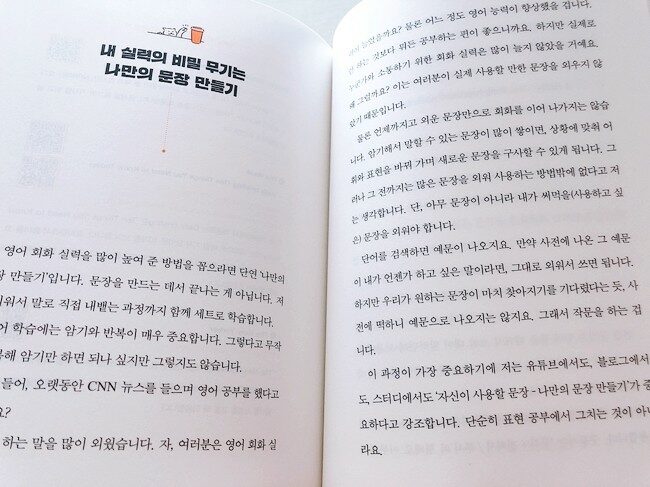 내 실력의 비밀 무기는
나만의 문장 만들기
영어 회화 실력을 많이 높여 준 방법을 꼽으라면 단연 '나만의
만들기'입니다. 문장을 만드는 데서 끝나는 게 아닙니다. 저
외워서 말로 직접 내뱉는 과정까지 함께 세트로 학습합니다.
학습에는 암기와 반복이 매우 중요합니다. 그렇다고 무작
암기만 하면 되나 싶지만 그렇지도 않습니다.
들어, 오랫동안 CNN 뉴스를 들으며 영어 공부를 했다고
요?
하는 말을 많이 외웠습니다. 자, 여러분은 영어 회화 실
늘었을까요? 물론 어느 정도 영어 능력이 향상했을 겁니다.
하는 것보다 뭐든 공부하는 편이 좋으니까요. 하지만 실제로
소통하기 위한 회화 실력은 많이 늘지 않았을 거예요.
그럴까요? 이는 여러분이 실제 사용할 만한 문장을 외우지 않
았기 때문입니다.
물론 언제까지고 외운 문장만으로 회화를 이어 나가지는 않습
니다. 암기해서 말할 수 있는 문장이 많이 쌓이면, 상황에 맞춰 어
휘와 표현을 바꿔 가며 새로운 문장을 구사할 수 있게 됩니다. 그
러나 그 전까지는 많은 문장을 외워 사용하는 방법밖에 없다고 저
는 생각합니다. 단, 아무 문장이 아니라 내가 써먹을(사용하고 싶
은) 문장을 외워야 합니다.
단어를 검색하면 예문이 나오지요. 만약 사전에 나온 그 예문
이 내가 언젠가 하고 싶은 말이라면, 그대로 외워서 쓰면 됩니다.
하지만 우리가 원하는 문장이 마치 찾아지기를 기다렸다는 듯, 사
전에 떡하니 예문으로 나오지는 않지요. 그래서 작문을 하는 겁
니다.
이 과정이 가장 중요하기에 저는 유튜브에서도, 블로그에서
도, 스터디에서도 '자신이 사용할 문장 - 나만의 문장 만들기'가 중
요하다고 강조합니다. 단순히 표현 공부에서 그치는 것이 아니
라요.